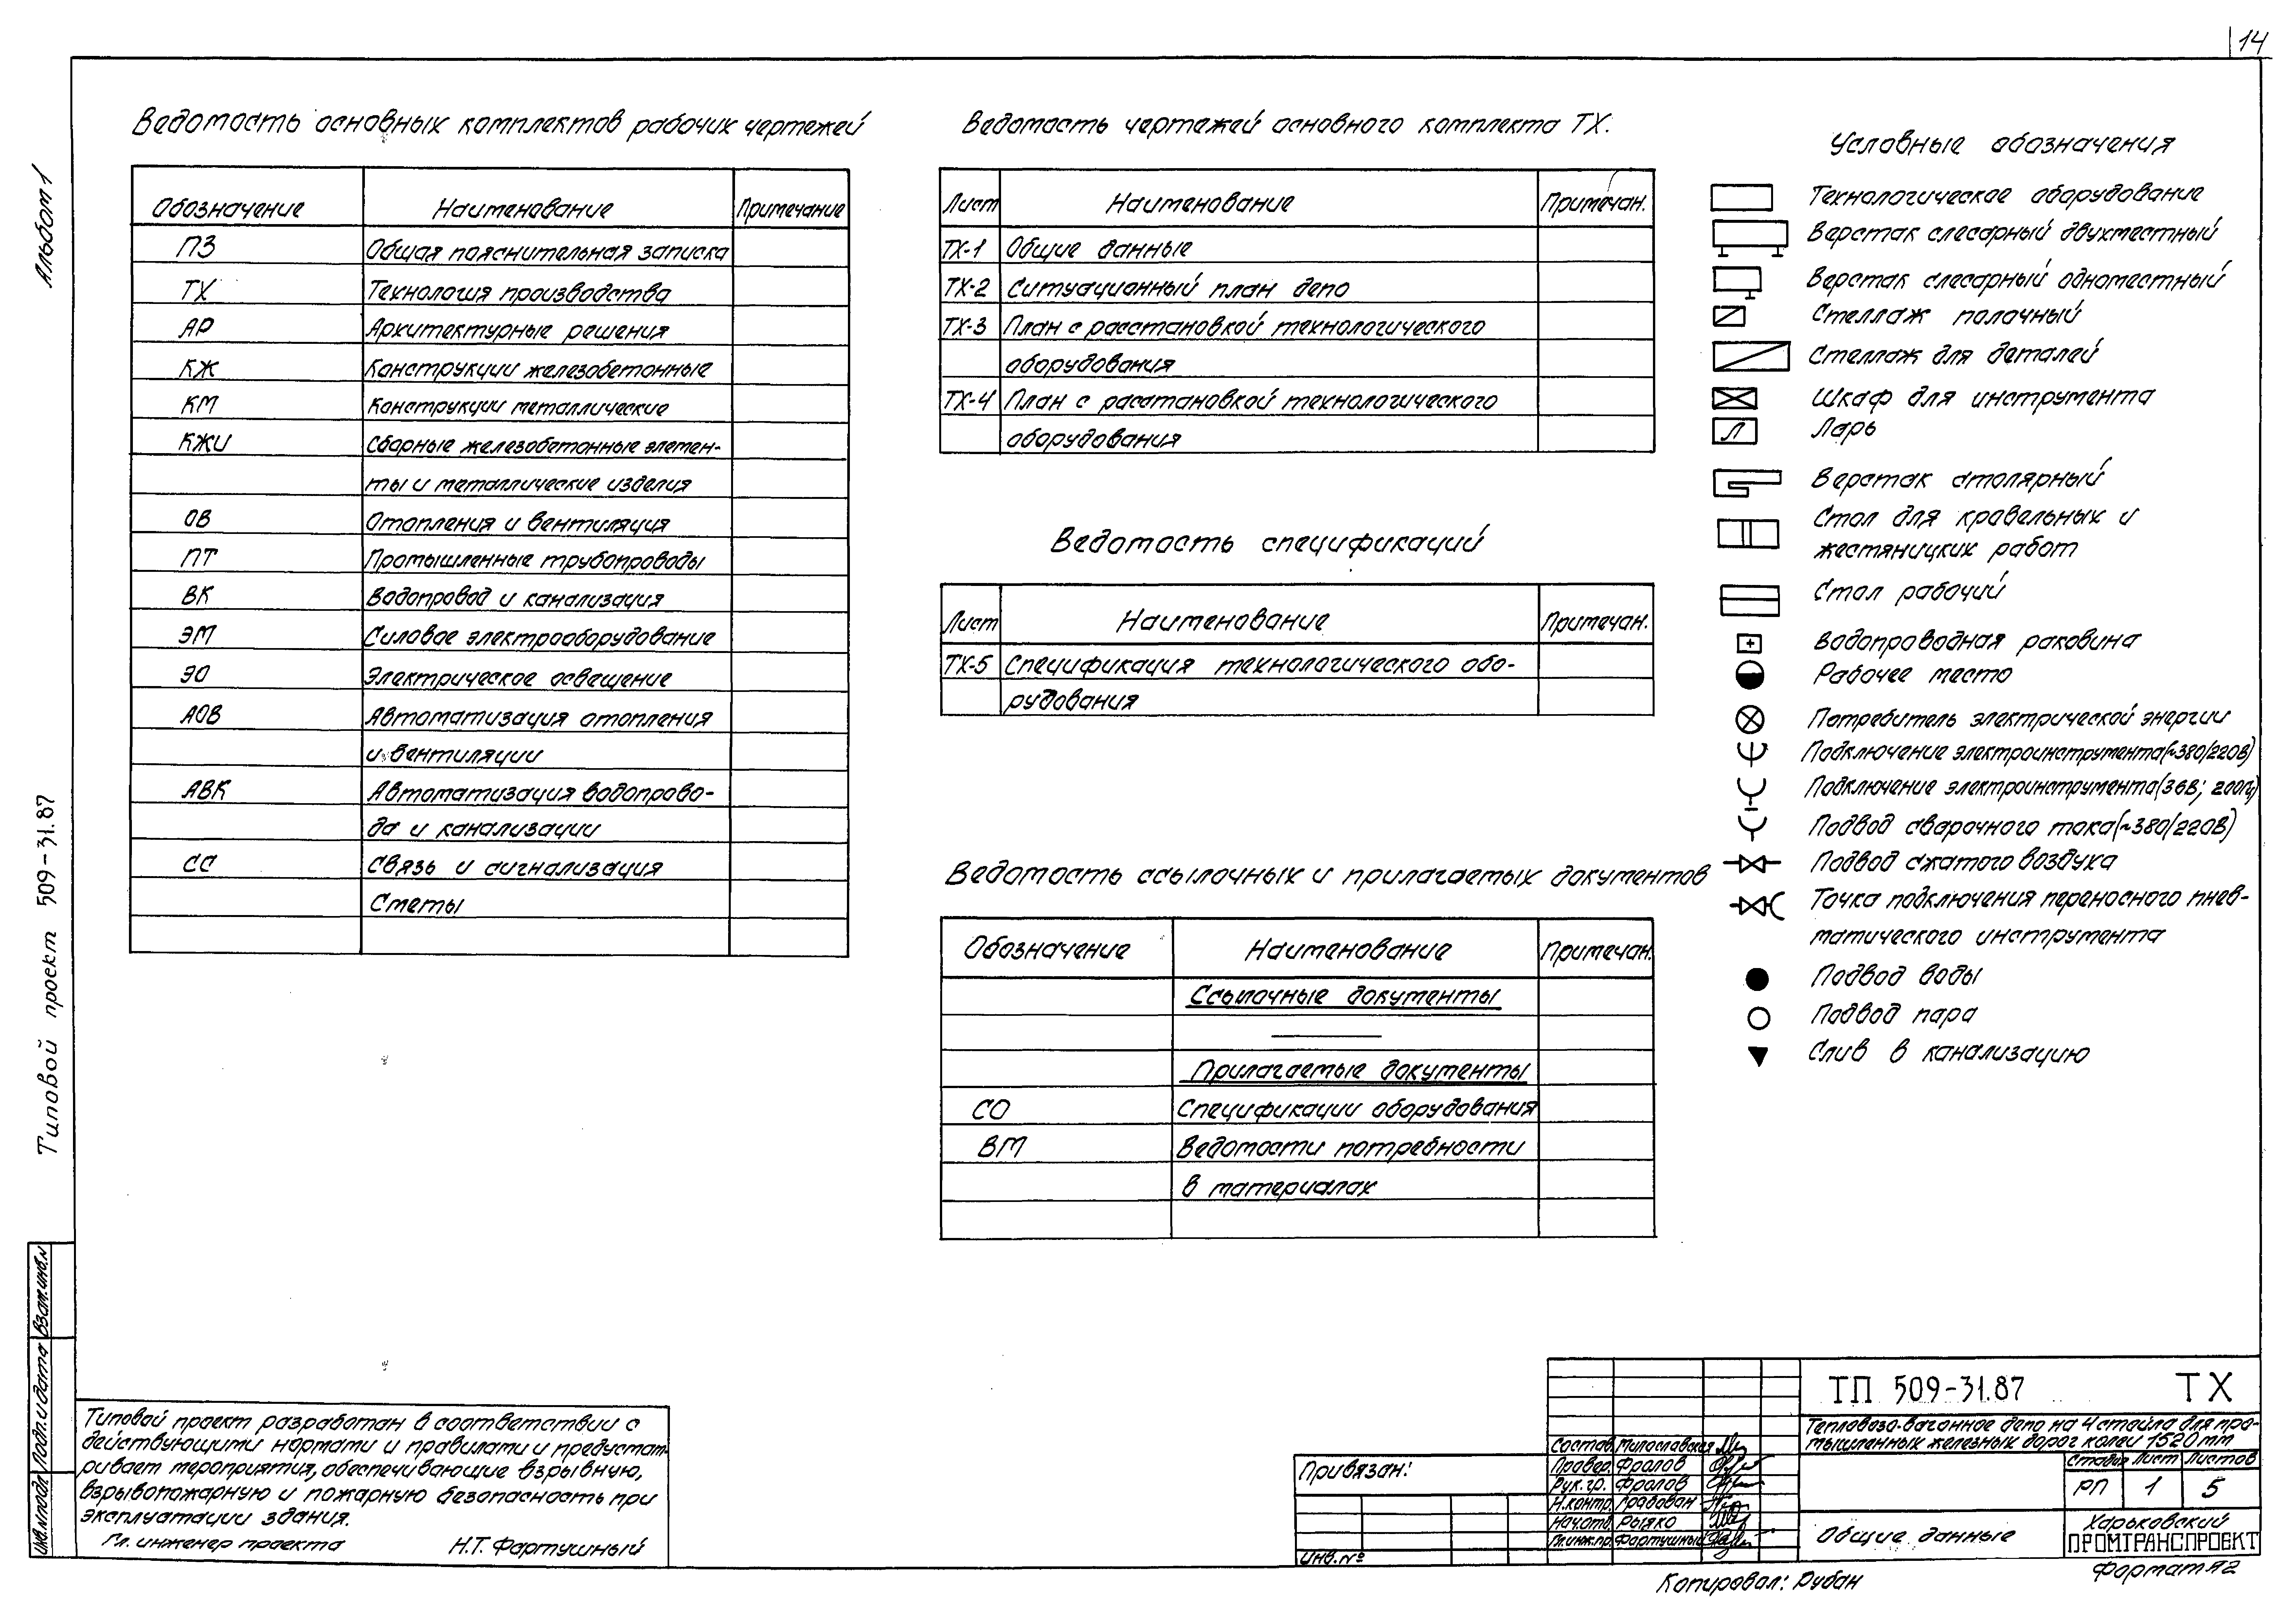 14
Альбом 1
Типовой проект 509-31.87
Ведомость основных комплектов рабочих чертежей
Обозначение Наименование Примечание
ПЗ Общая пояснительная записка
ТХ Технология производства
АР Архитектурные решения
КЖ Конструкции железобетонные
КМ Конструкции металлические
КЖИ Сборные железобетонные элемен-
ты и металлические изделия
ОВ Отопления и вентиляция
ПТ Промышленные трубопроводы
ВК Водопровод и канализация
ЭМ Силовое электрооборудование
ЭО Электрическое освещение
АОВ Автоматизация отопления
и вентиляции
АВК Автоматизация водопрово-
да и канализации
СС Связь и сигнализация
Сметы
Ведомость чертежей основного комплекта ТХ.
Лист Наименование Примечан.
ТХ-1 Общие данные
ТХ-2 Ситуационный план депо
ТХ-3 План с расстановкой технологического
оборудования
ТХ-4 План с расстановкой технологического
оборудования
Ведомость спецификаций
Лист Наименование Примечан.
ТХ-5 Спецификация технологического обо-
рудования
Ведомость ссылочных и прилагаемых документов
Обозначение Наименование Примечан.
Ссылочные документы
Прилагаемые документы
СО Спецификации оборудования
ВМ Ведомости потребности
в материалах
Условные обозначения
Технологическое оборудование
Верстак слесарный двухместный
Верстак слесарный одноместный
Стеллаж полочный
Стеллаж для деталей
Шкаф для инструмента
Л Ларь
Верстак столярный
Стол для кровельных и
жестяницких работ
Стол рабочий
Водопроводная раковина
Рабочее место
Потребитель электрической энергии
Подключение электроинструмента(~380/220В)
Подключение электроинструмента(36В; 200Гц)
Подвод сварочного тока(~380/220В)
Подвод сжатого воздуха
Точка подключения переносного пнев-
матического инструмента
Подвод воды
Подвод пара
Слив в канализацию
Инв.№подл. Подп.и дата Взам.инв.№
Типовой проект разработан в соответствии с
действующими нормами и правилами и предусмат-
ривает мероприятия, обеспечивающие взрывную,
взрывопожарную и пожарную безопасность при
эксплуатации здания.
Гл. инженер проекта Н.Т. Фартушный
Привязан:
Инв.№
Состав. Милославская
Провер. Фролов
Рук.гр. Фролов
Н.контр. Грабован
Нач.отд. Рыжко
Гл.инж.пр. Фартушный
ТП 509-31.87 ТХ
Тепловозо-вагонное депо на 4 стойла для про-
мышленных железных дорог колеи 1520 мм
Стадия Лист Листов
РП 1 5
Общие данные
Харьковский
ПРОМТРАНСПРОЕКТ
Копировал: Рубан
Формат А2